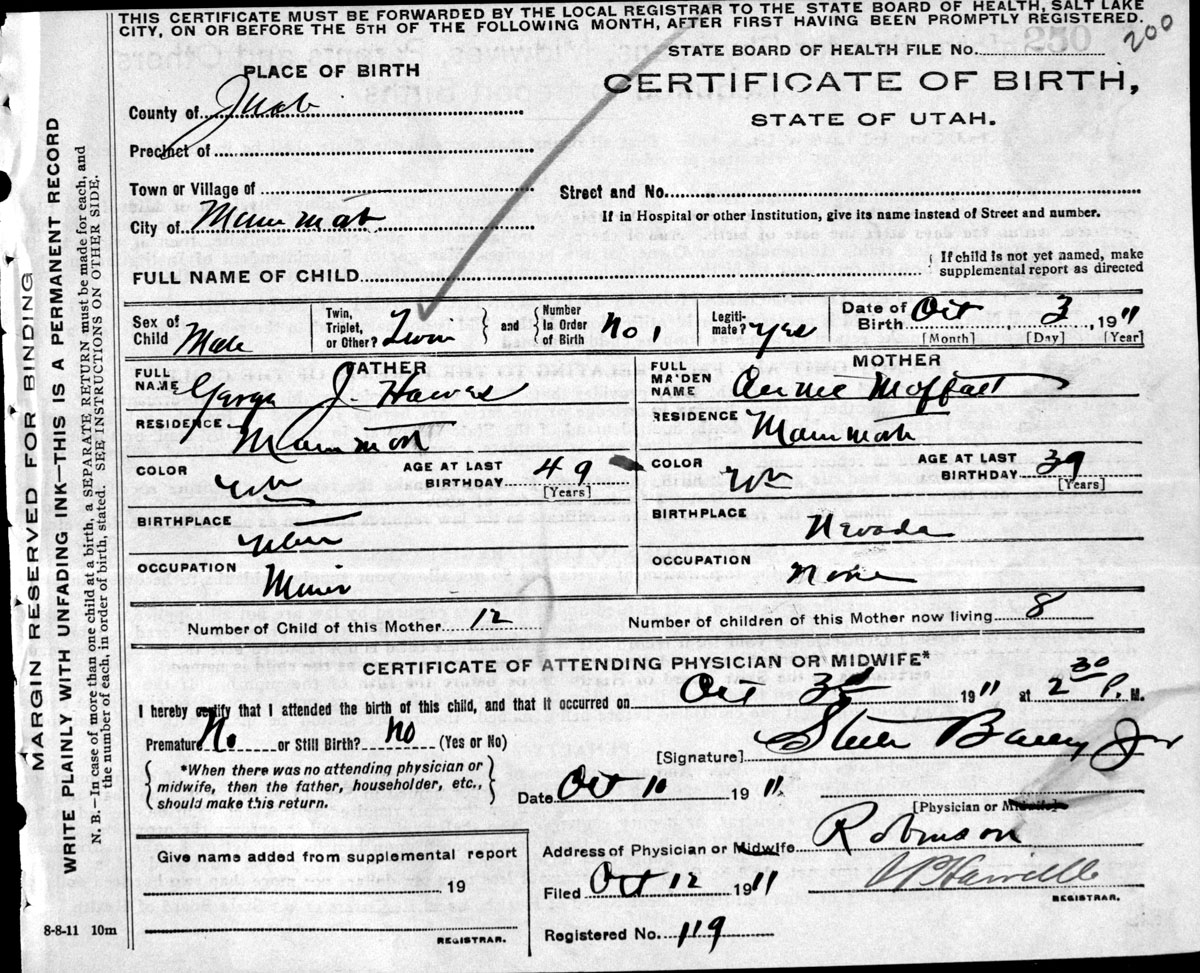 THIS CERTIFICATE MUST BE FORWARDED BY THE LOCAL REGISTRAR TO THE STATE BOARD OF HEALTH, SALT LAKE
CITY, ON OR BEFORE THE 5TH OF THE FOLLOWING MONTH, AFTER FIRST HAVING BEEN PROMPTLY REGISTERED.
200
STATE BOARD OF HEALTH FILE No.
PLACE OF BIRTH
CERTIFICATE OF BIRTH,
STATE OF UTAH.
County of Juab
Precinct of
Town or Village of
Street and No.
City of Mammoth
If in Hospital or other Institution, give its name instead of Street and number.
FULL NAME OF CHILD
If child is not yet named, make supplemental report as directed
Sex of Child Male
Twin, Triplet, or Other? Twin
and Number In Order of Birth No 1
Legiti-mate? Yes
Date of Birth Oct 3, 1911
[Month] [Day] [Year]
FATHER
FULL NAME George J. Hawes
RESIDENCE Mammoth
COLOR Wh
AGE AT LAST BIRTHDAY 49
[Years]
BIRTHPLACE
OCCUPATION Miner
MOTHER
FULL MAIDEN NAME Annie Moffatt
RESIDENCE Mammoth
COLOR Wh
AGE AT LAST BIRTHDAY 39
[Years]
BIRTHPLACE Nevada
OCCUPATION None
Number of Child of this Mother 12
Number of children of this Mother now living 8
CERTIFICATE OF ATTENDING PHYSICIAN OR MIDWIFE*
I hereby certify that I attended the birth of this child, and that it occurred on Oct 3d 1911 at 2 30 P. M.
Premature No or Still Birth? no (Yes or No)
*When there was no attending physician or
midwife, then the father, householder, etc.,
should make this return.
[Signature] Steele Bailey Jr
Date Oct 10 1911
[Physician or Midwife]
Address of Physician or Midwife Robinson
Give name added from supplemental report
19
REGISTRAR.
Filed Oct 12 1911
REGISTRAR.
Registered No. 119
8-8-11 10m
MARGIN RESERVED FOR BINDING
WRITE PLAINLY WITH UNFADING INK—THIS IS A PERMANENT RECORD
N. B.—In case of more than one child at a birth, a SEPARATE RETURN must be made for each, and
the number of each, in order of birth, stated. SEE INSTRUCTIONS ON OTHER SIDE.